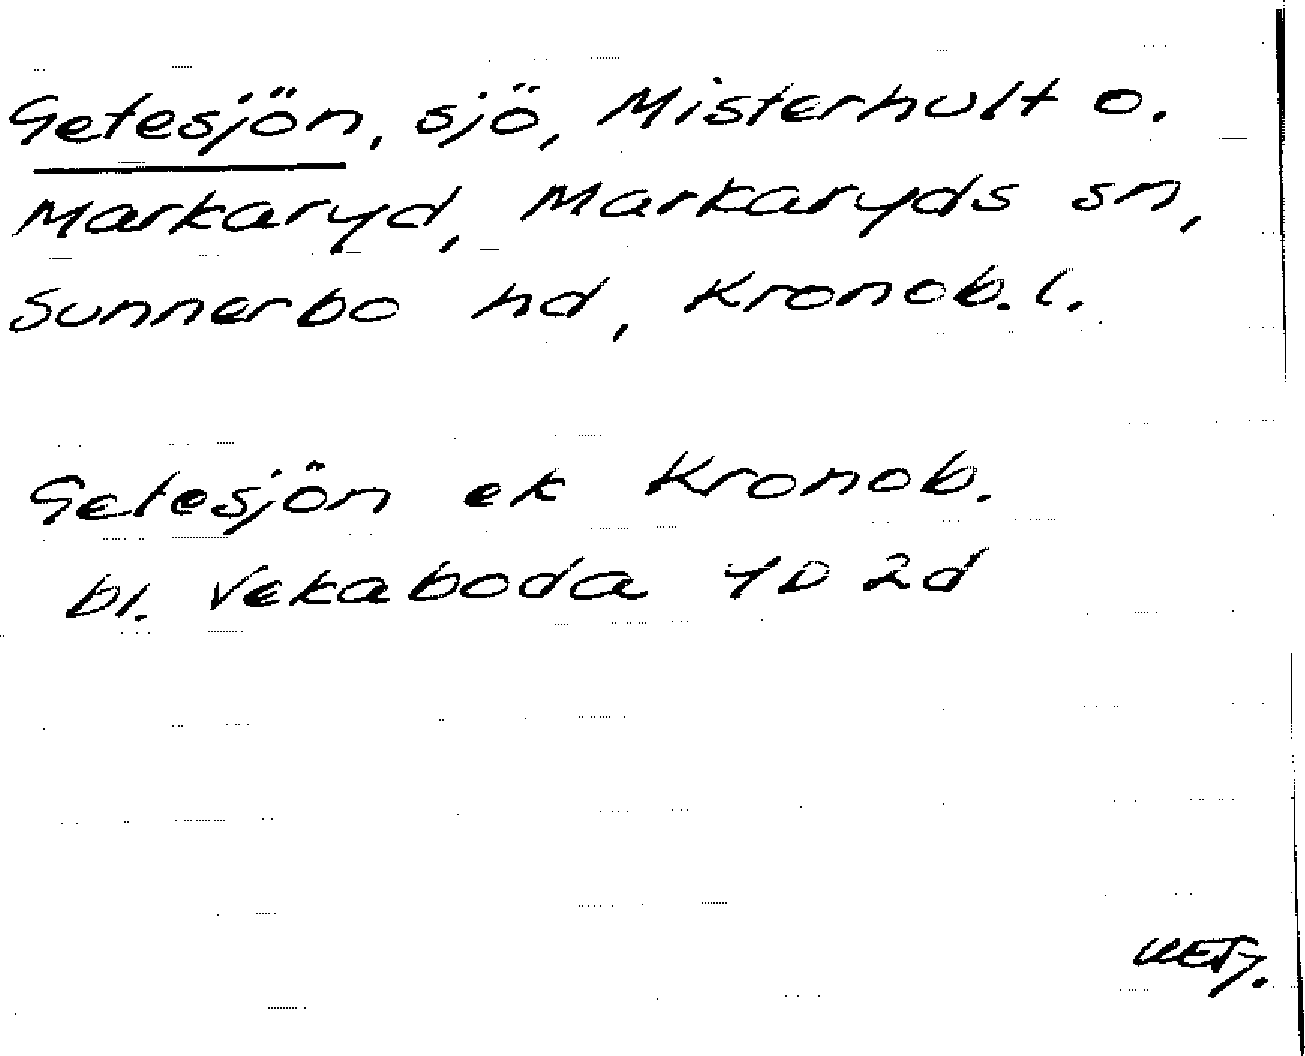 Getesjön, sjö, Misterhult o.
Markaryd, Markaryds sn,
Sunnerbo hd, Kronob. l.
Getesjön ek Kronob.
bl. Vekaboda 4D 2d